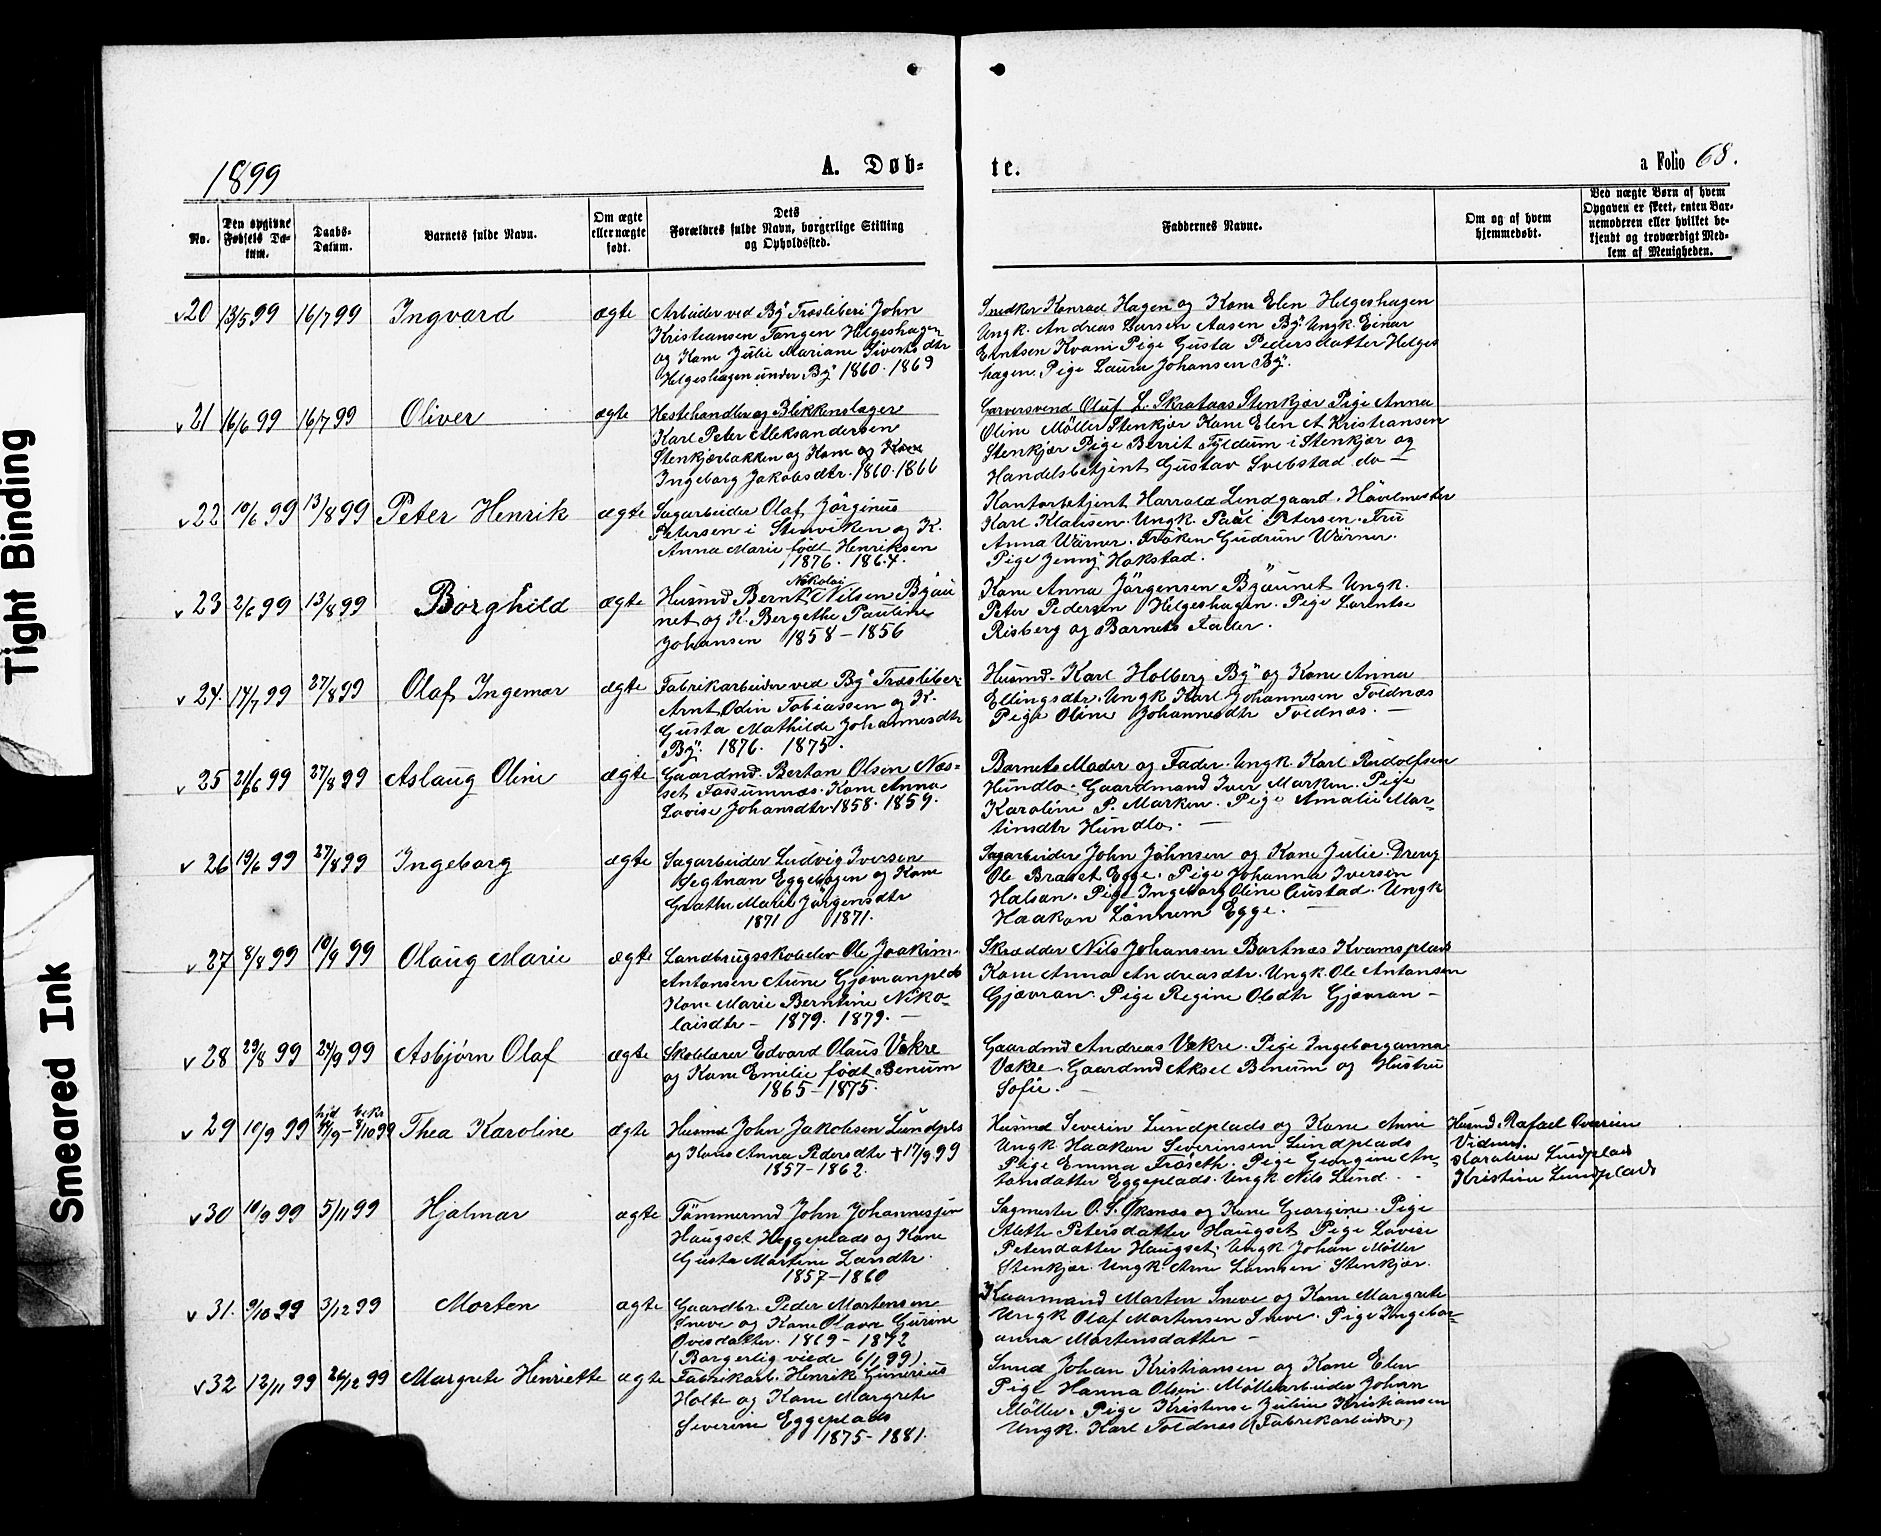 Tight Binding
Smeared Ink
1899
A. Døb-
te.
a Folio 68.
No.
Den opgivne Fødsels Da-
tum.
Daabs-
Datum.
Barnets fulde Navn.
Om ægte
eller uægte
født.
Dets
Forældres fulde Navn, borgerlige Stilling
og Opholdssted.
Faddernes Navne.
Om og af hvem
hjemmedøbt.
Ved uægte Børn af hvem
Opgaven er skeet, enten Bar-
nemoderen eller hvilket be-
kjendt og troværdigt Med-
lem af Menigheden.
v 20 13/5 99 16/7 99 Ingvard ægte
Arbeider ved By Træsliberi John
Kristiansen Tangen Helgeshagen
og Kone Julie Mariane Sivertsdtr
Helgeshagen under By 1860. 1869
Snedker Konrad Hagen og Kone Elen Helgeshagen
Ungk. Andreas Larsen Aasen By. Ungk. Einar
Erntsen Kvam Pige Gusta Pedersdatter Helges
hagen. Pige Laura Johansen By.
v 21 16/6 99 16/7 99 Oliver ægte
Hestehandler og Blikkenslager
Karl Peter Aleksandersen
Stenkjærbakken og Kone og Kone
Ingeborg Jakobsdtr. 1860. 1866
Garversvend Oluf L. Skrataas Stenkjær Pige Anna
Oline Møller Stenkjær Kone Elen A Kristiansen
Stenkjær Pige Berrit Tyldum i Stenkjær og
Handelsbetjent Gustav Svebstad do —
v 22 10/6 99 13/8 99 Peter Henrik ægte
Sagarbeider Olaf Jørginus
Petersen i Stenviken og K.
Anna Marie født Henriksen
1876. 1864.
Kontorbetjent Harrald Lindgaard. Høvelmester
Karl Klausen. Ungk. Paul Petersen. Fru
Anna Wärner. Frøken Gudrun Wärner.
Pige Jenny Hokstad.
v 23 2/6 99 13/8 99 Borghild ægte
Nikolai
Husmd Bernt Nilsen Byau
net og K. Bergethe Pauline
Johansen 1858 — 1856
Kone Anna Jørgensen Byaunet Ungk.
Peter Pedersen Helgeshagen. Pige Lorentse
Risberg og Barnets Fader.
v 24. 14/7 99 27/8 99 Olaf Ingemar ægte
Fabrikarbeider ved By Træsliberi
Arnt Odin Tobiassen og K.
Gusta Mathilde Johannesdtr
By. 1876. 1875.
Husmd. Karl Holberg By og Kone Anna
Ellingsdtr. Ungk Karl Johannesen Tvednæs
Pige Oline Johannesdtr Tvednæs. —
v 25 21/6 99 27/8 99 Aslaug Oline ægte
Gaardmd. Berton Olsen Næs-
set Fossumnæs. Kone Anna
Lovise Johansdtr. 1858. 1859.
Barnets Moder og Fader. Ungk. Karl Rudolfsen
Hundlo. Gaardmand Iver Marken. Pige
Karoline P. Marken. Pige Amalie Mar-
tinsdtr Hundlo. —
v 26 19/6 99 27/8 99 Ingeborg ægte
Sagarbeider Ludvig Iversen
Hegtnan Eggebogen og Kone
Grethe Marie Jørgensdtr
1871 1871.
Sagarbeider John Johnsen og Kone Julie. Dreng
Ole Braset Egge. Pige Johanna Iversen
Halsan. Pige Ingeborg Oline Austad. Ungk
Haakon Lønnum Egge. —
v 27 8/8 99 10/9 99 Olaug Marie ægte
Landbrugsskoleelev Ole Joakim
Antonsen Aune Gjævranplds
Kone Marie Berntine Niko-
laisdtr — 1879. 1879. —
Skrædder Nils Johansen Bartnæs Kvamsplads
Kone Anna Andreasdtr. Ungk. Ole Antonsen
Gjævran. Pige Regine Olsdtr Gjævran —
v 28 29/8 99 24/9 99 Asbjørn Olaf ægte
Skolelærer Edvard Olaus Vekre
og Kone Emelie født Benum
1865 — 1875.
Gaardmd Andreas Vekre. Pige Ingeborganna
Vekre. Gaardmd Aksel Benum og Hustru
Sofie. —
v 29 10/9 99 hjd 14/9 — bekr 8/10 99 Thea Karoline ægte
Husmd John Jakobsen Lundpls
og Kone Anna Pedersdtr † 17/9 99
1857 — 1862.
Husmd Severin Lundplads og Kone Anne
Ungk Haakon Severinsen Lundplads
Pige Emma Frøseth. Pige Georgine An-
tonsdatter Eggeplads. Ungk Nils Lund.
Husmd. Rafael Ovesen
Vidner.
Karoline Lundplads
Kristine Lundplads
v 30 10/9 99 5/11 99 Hjalmar ægte
Tømmermd John Johannessen
Haugset Heggeplads og Kone
Gusta Martine Larsdtr.
1857 — 1860
Sagmester O. S. Øksnæs og Kone Georgine. Pige
Alette Petersdatter Haugset Pige Lovise
Petersdatter Haugset. Ungk Johan Møller
Stenkjær. Ungk. Arne Larnsen Stenkjær.
v 31. 9/10 99 3/12 99 Morten ægte
Gaardbr. Peder Mortensen
Sneve og Kone Olava Gurine
Ovesdatter. 1869 — 1872
(Borgerlig viede 6/1 99).
Kaarmand Morten Sneve og Kone Margrete
Ungk Olaf Mortensen Sneve. Pige Ingebor-
anna Mortensdatter —
v 32 12/11 99 26/12 99 Margrete Henriette ægte
Fabrikarb. Henrik Ginerius
Holte og Kone Margrete
Severine Eggeplads
1875 — 1881.
Smed Johan Kristiansen og Kone Elen
Pige Hanna Olsen. Møllearbeider Johan
Møller. Pige Kristense Juline Kristiansen
Ungk. Karl Toldnæs (Fabrikarbeider)